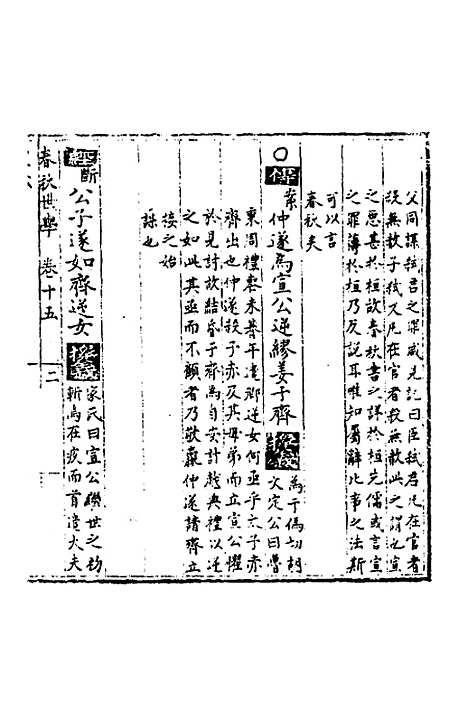 父同謀弑君之罪咸見記曰臣弑君凡在官者
殺無赦子弑父凡在宫者殺無赦此之謂也宣
之惡甚於桓故春秋書之詳於桓先儒或言宣
之罪薄於桓乃反説耳唯知屬辭比事之法斯
可以言
春秋夫
○傳案仲遂爲宣公逆繆姜于齊
爲于僞切胡
文定公曰魯
秉周禮喪未朞年遣卿逆女何亟乎太子赤
齊出也仲遂殺子赤及其母弟而立宣公懼
於見討故結昏于齊爲自安計越典禮以逆
之如此其亟而不顧者乃敬嬴仲遂請齊立
接之始
謀也
經斷公子遂如齊逆女
家氏曰宣公繼世之初
斬焉在疚而首遣大夫
春秋世學 卷十五
二